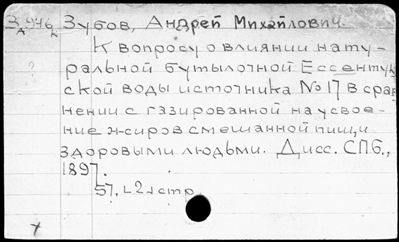 Зубов, Андрей Михайлович.
К вопросу о влиянии нату-
ральной бутылочной Ессентук
ской воды источника № 17 в срав
нении с газированной на усвое-
ние жиров смешанной пищи
здоровыми людьми. Дисс. СПб.,
1897.
57, L 2 стр